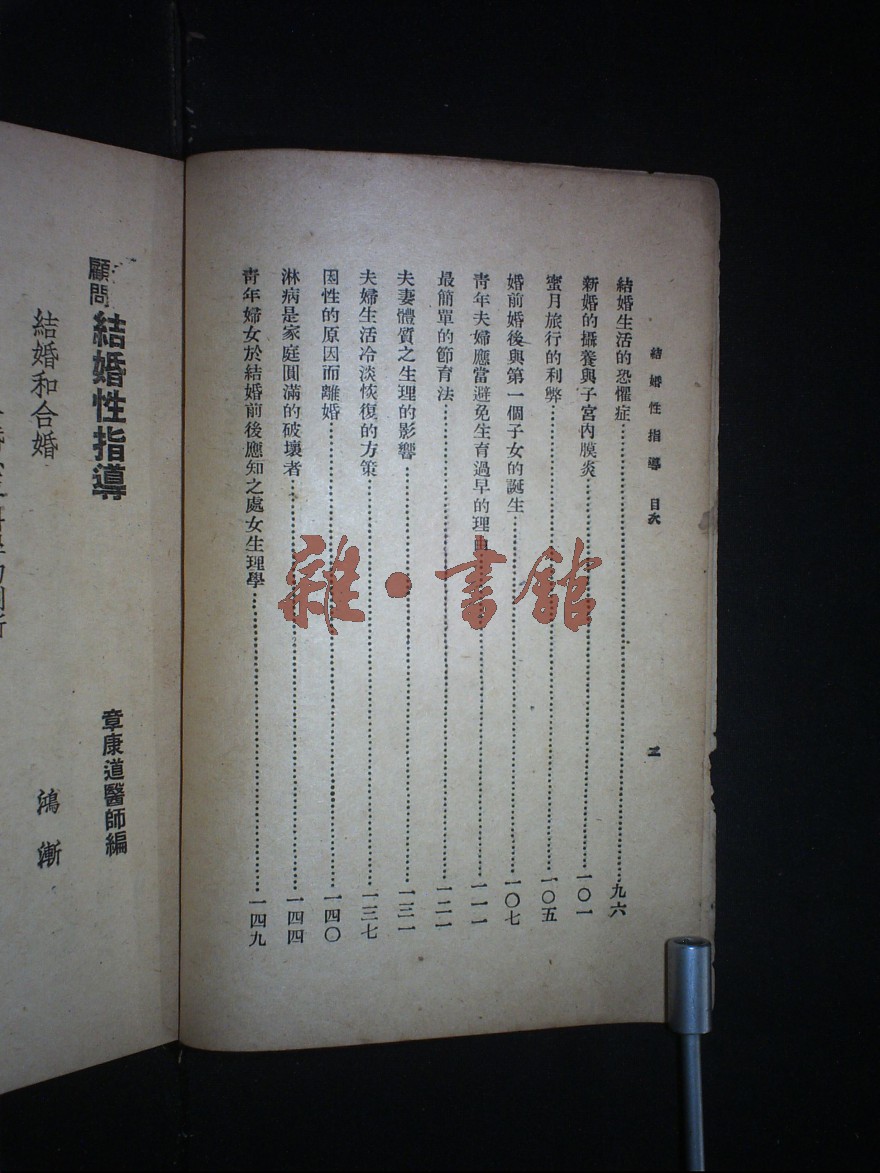 結婚性指導 目次 二
結婚生活的恐懼症 九六
新婚的攝養與子宮內膜炎 一〇一
蜜月旅行的利弊 一〇五
婚前婚後與第一個子女的誕生 一〇七
青年夫婦應當避免生育過早的理由 一一一
最簡單的節育法 一二一
夫妻體質之生理的影響 一三一
夫婦生活冷淡恢復的方策 一三七
因性的原因而離婚 一四〇
淋病是家庭圓滿的破壞者 一四四
青年婦女於結婚前後應知之處女生理學 一四九
雜·書館
顧問 結婚性指導 章康道醫師編
結婚和合婚 鴻漸